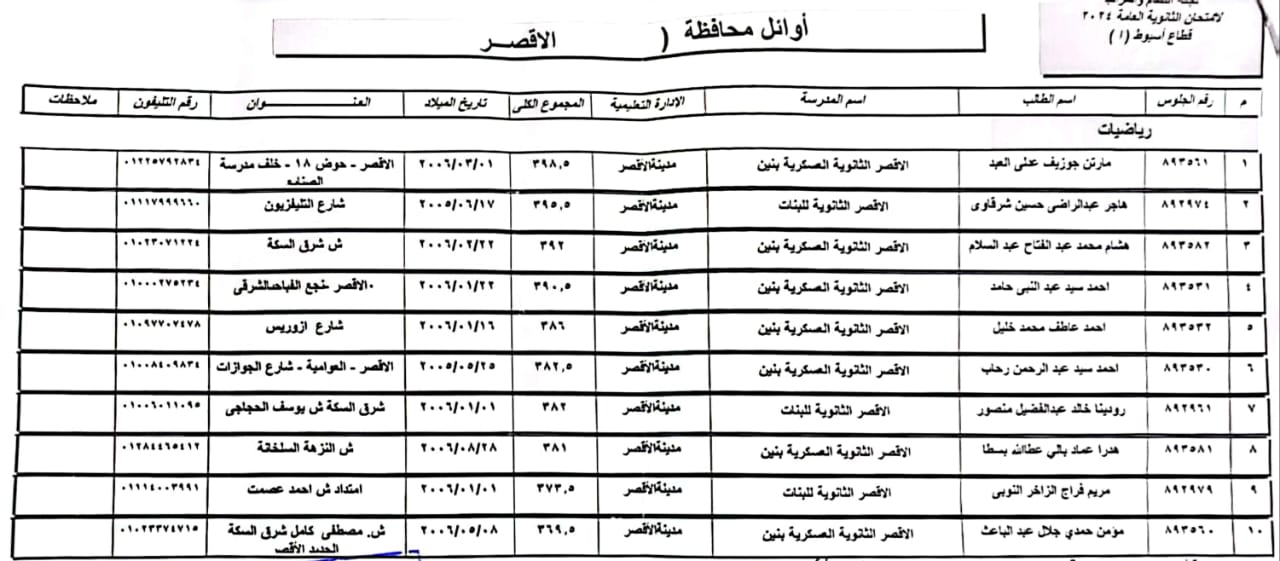 لامتحان الثانوية العامة ٢٠٢٤
قطاع أسيوط (١)
أوائل محافظة ( الاقصر
م رقم الجلوس اسم الطالب اسم المدرسة الادارة التعليمية المجموع الكلى تاريخ الميلاد العنـــــوان رقم التليفون ملاحظات
رياضيات
١ ٨٩٣٥٦١ مارتن جوزيف عدلى العبد الاقصر الثانوية العسكرية بنين مدينةالاقصر ٣٩٨,٥ ٢٠٠٦/٠٣/٠١ الاقصر - حوض ١٨ - خلف مدرسة الصنايع ٠١٢٢٥٧٩٢٨٣٤
٢ ٨٩٢٩٧٤ هاجر عبدالراضى حسين شرقاوى الاقصر الثانوية للبنات مدينةالاقصر ٣٩٥,٥ ٢٠٠٥/٠٦/١٧ شارع التليفزيون ٠١١١٧٩٩٩٦٦٠
٣ ٨٩٣٥٨٢ هشام محمد عبد الفتاح عبد السلام الاقصر الثانوية العسكرية بنين مدينةالاقصر ٣٩٢ ٢٠٠٦/٠٢/٢٢ ش شرق السكة ٠١٠٢٣٠٧١٢٢٤
٤ ٨٩٣٥٣١ احمد سيد عبد النبى حامد الاقصر الثانوية العسكرية بنين مدينةالاقصر ٣٩٠,٥ ٢٠٠٦/٠١/٢٢ ٠الاقصر -نجع الفباحىالشرقى ٠١٠٠٠٢٧٥٢٣٤
٥ ٨٩٣٥٣٢ احمد عاطف محمد خليل الاقصر الثانوية العسكرية بنين مدينةالاقصر ٣٨٦ ٢٠٠٦/٠١/١٦ شارع ازوريس ٠١٠٩٧٧٠٧٤٧٨
٦ ٨٩٣٥٣٠ احمد سيد عبد الرحمن رحاب الاقصر الثانوية العسكرية بنين مدينةالاقصر ٣٨٢,٥ ٢٠٠٥/٠٥/٢٥ الاقصر - العوامية - شارع الجوازات ٠١٠٠٨٤٠٩٨٣٤
٧ ٨٩٢٩٦١ رودينا خالد عبدالفضيل منصور الاقصر الثانوية للبنات مدينةالاقصر ٣٨٢ ٢٠٠٦/٠١/٠١ شرق السكة ش يوسف الحجاجى ٠١٠٠٦٠١١٠٩٥
٨ ٨٩٣٥٨١ هدرا عماد بالي عطاالله بسطا الاقصر الثانوية العسكرية بنين مدينةالاقصر ٣٨١ ٢٠٠٦/٠٨/٢٨ ش النزهة السلخانة ٠١٢٨٤٤٦٥٤١٢
٩ ٨٩٢٩٧٩ مريم فراج الزاخر النوبى الاقصر الثانوية للبنات مدينةالاقصر ٣٧٣,٥ ٢٠٠٦/٠١/٠١ امتداد ش احمد عصمت ٠١١١٤٠٠٣٩٩١
١٠ ٨٩٣٥٦٠ مؤمن حمدي جلال عبد الباعث الاقصر الثانوية العسكرية بنين مدينةالاقصر ٣٦٩,٥ ٢٠٠٦/٠٥/٠٨ ش. مصطفى كامل شرق السكة الحديد الأقصر ٠١٠٢٣٣٧٤٧١٥